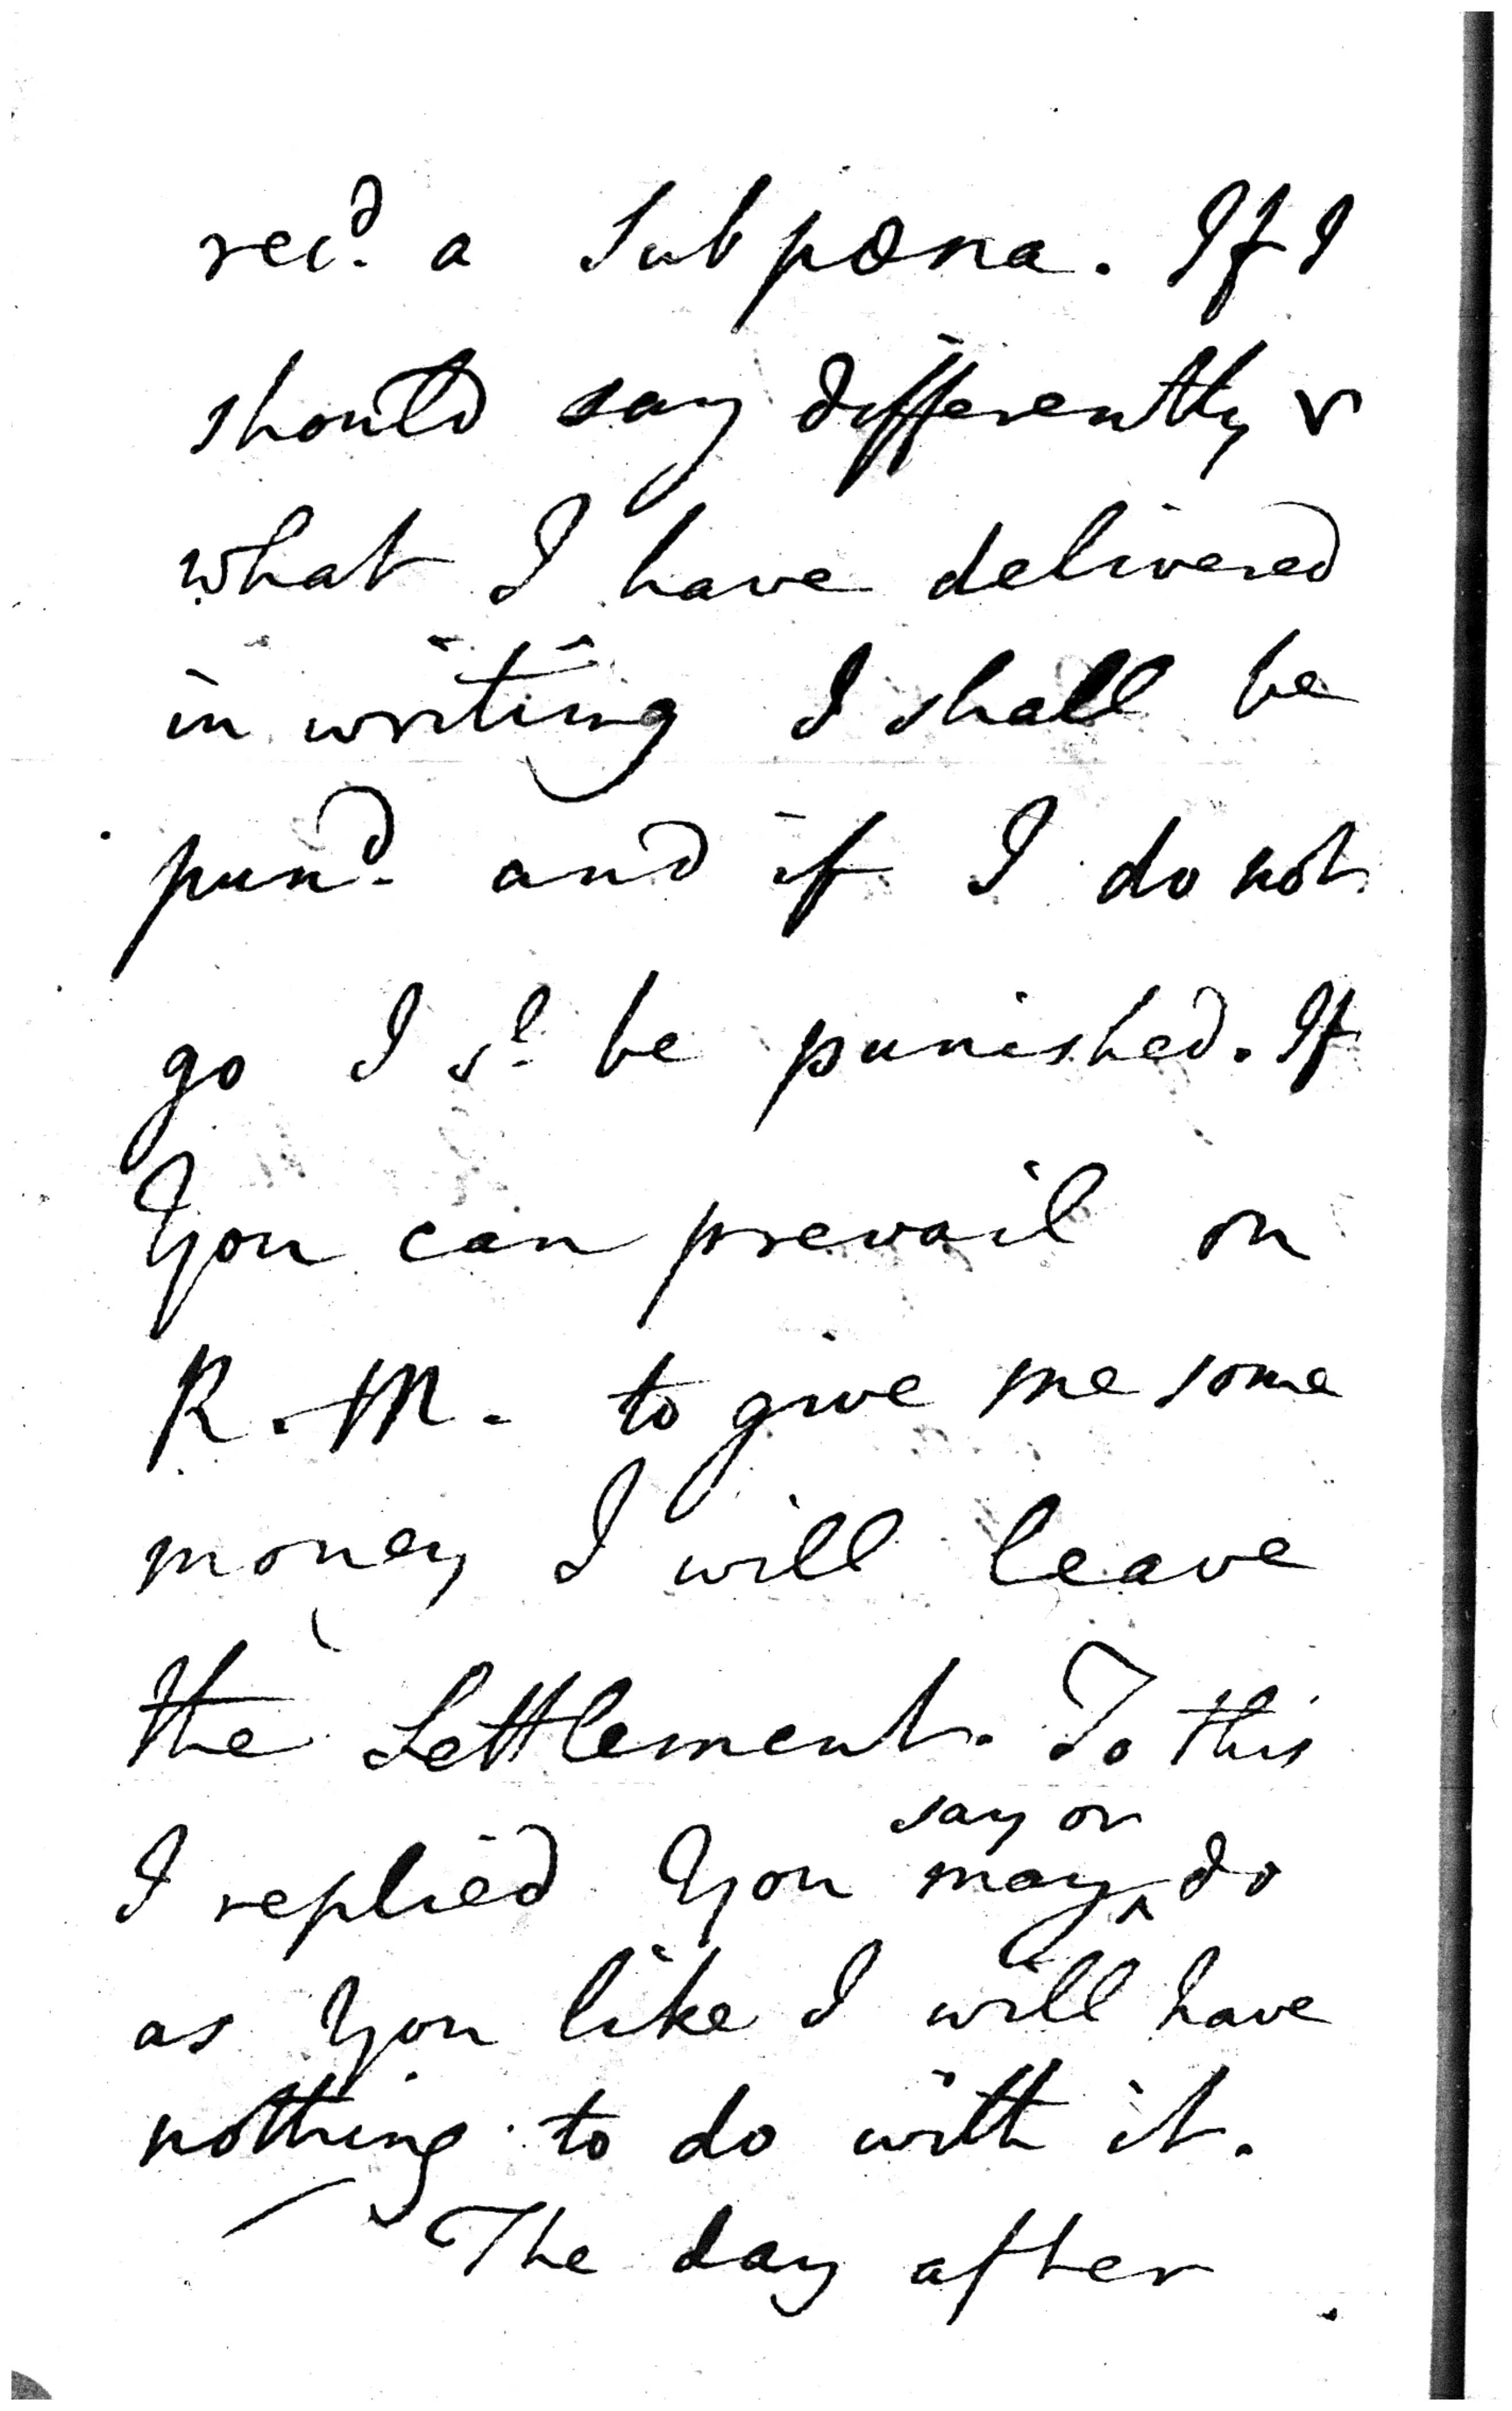 recd. a Subpœna. If I
should say differently
what I have delivered
in writing I shall be
pund. and if I do not
go I sl. be punished. If
You can prevail on
R. M. to give me some
money I will leave
the Settlement. To this
say or
I replied You may ^ do
as You like I will have
nothing to do with it.
The day after